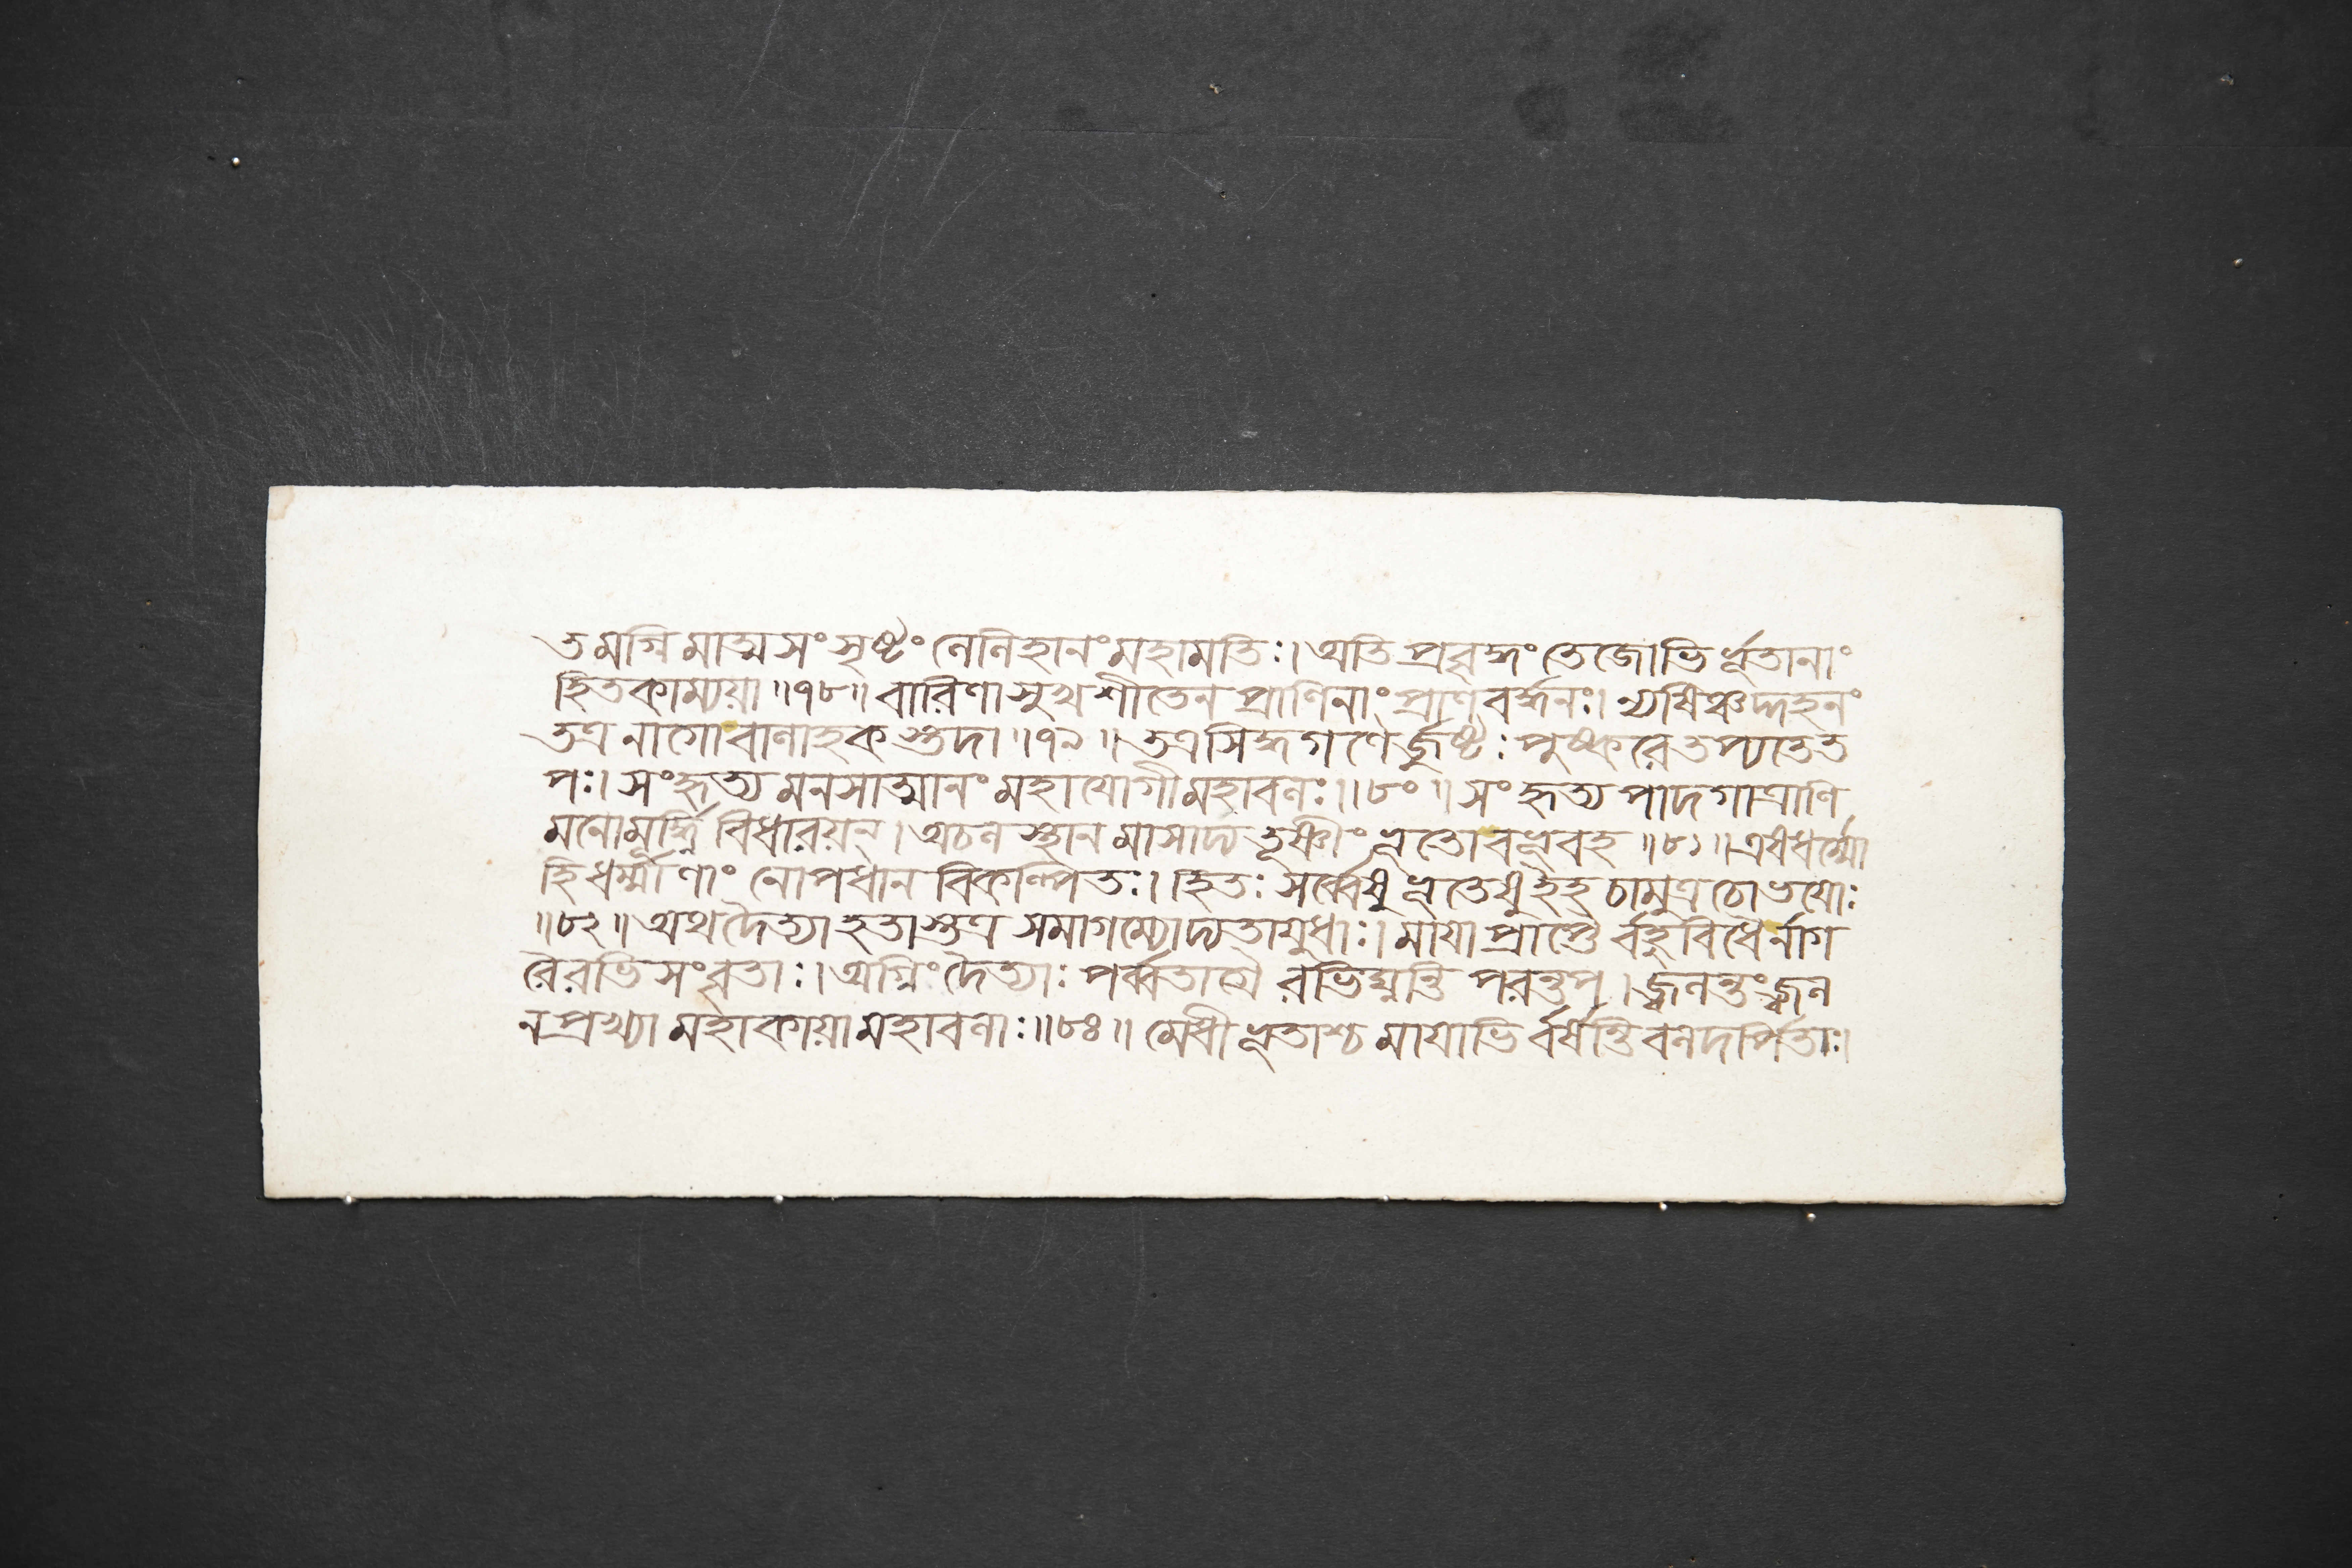 তমগ্নিমাত্মসংসৃষ্টং লেলিহানং মহামতিঃ। অতিপ্রবৃদ্ধং তেজোভির্ভূতানাং
হিতকাম্যয়া ॥৭৮॥ বারিণা সুখশীতেন প্রাণিনাং প্রাণবর্দ্ধনঃ। ন্যষিঞ্চদ্দহনং
তত্র নাগো বালাহকস্তদা ॥৭৯॥ তত্র সিদ্ধগণৈর্জুষ্টঃ পুষ্করে তপ্যতে ত
পঃ। সংহৃত্য মনসাত্মানং মহাযোগী মহাবলঃ॥৮০॥ সংহৃত্য পাদগাত্রাণি
মনোমূর্দ্ধ্নি বিধারয়ন্। অচলস্থানমাসাদ্য তূষ্ণীং ভূতো বভূবহ ॥৮১॥ এষ ধর্ম্মো
হি ধর্ম্মাণাং নোপধানবিকল্পিতঃ। হিতঃ সর্ব্বেষু ভূতেষু ইহ চামুত্র চোভয়োঃ
॥৮২॥ অথ দৈত্যা হতাস্তত্র সমাগম্যোদ্যতায়ুধাঃ। মায়াপ্রাপ্তৈর্বহুবিধৈর্নাগ
রৈরভিসংবৃতাঃ। অগ্নিং দৈত্যাঃ পর্ব্বতাগ্রৈরভিঘ্নন্তি পরন্তপ। জ্বলন্তং জ্বল
নপ্রখ্যা মহাকায়া মহাবলাঃ॥৮৪॥ মেঘীভূতাশ্চ মায়াভির্বর্ষন্তি বলদর্পিতাঃ।